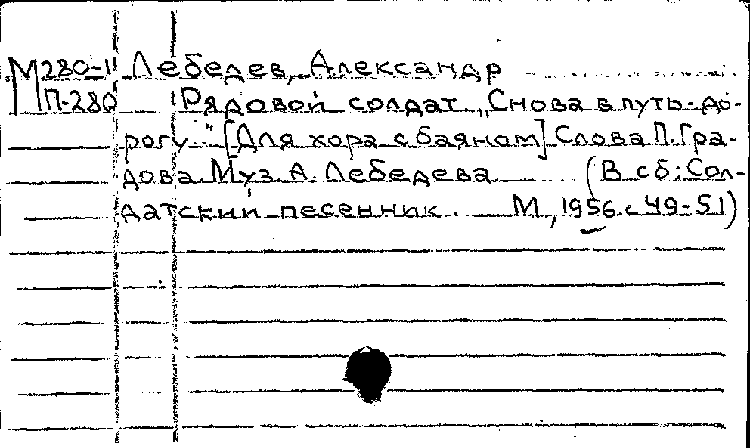 М280-11 Лебедев, Александр
П-280 Рядовой солдат „Снова в путь-до-
рогу" [Для хора с баяном] Слова П. Гра-
дова Муз. А. Лебедева (В сб: Сол-
датский песенник. М, 1956 с 49-51)